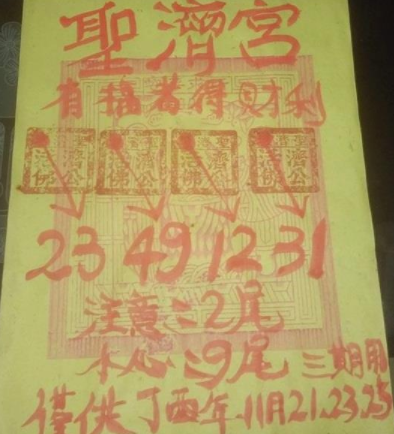 聖濟宮
有福者得財利
濟公活佛 濟公活佛 濟公活佛 濟公活佛
23 49 12 31
注意=2尾
本心=9尾 三期用
僅供丁酉年11月21.23.25